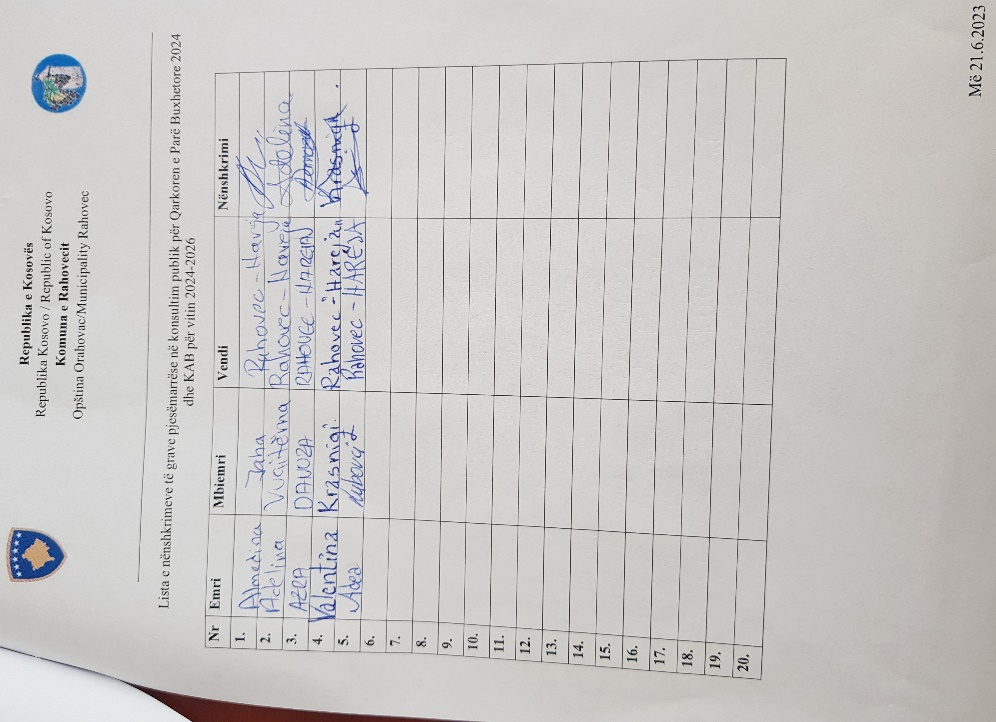 Republika e Kosovës
Republika Kosovo / Republic of Kosovo
Komuna e Rahovecit
Opština Orahovac/Municipality Rahovec
Lista e nënshkrimeve të grave pjesëmarrëse në konsultim publik për Qarkoren e Parë Buxhetore 2024
dhe KAB për vitin 2024-2026
Nr Emri Mbiemri Vendi Nënshkrimi
1. Almedina Jaha Rahovec - Hareja
2. Adelina Vuçitërna Rahovec - Hareja Adelina
3. AZRA DANUZA RAHOVEC - HAREJA
4. Valentina Krasniqi Rahovec - Hareja Krasniqi
5. Adea Rahovec - HAREJA
6.
7.
8.
9.
10.
11.
12.
13.
14.
15.
16.
17.
18.
19.
20.
Më 21.6.2023